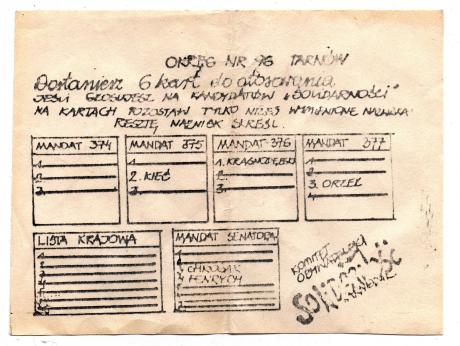 OKRĘG NR 96 TARNÓW
Dostaniesz 6 kart do głosowania
JEŚLI GŁOSUJESZ NA KANDYDATÓW „SOLIDARNOŚCI"
NA KARTACH POZOSTAW TYLKO NIŻEJ WYMIENIONE NAZWISKA
RESZTĘ NAZWISK SKREŚL.
MANDAT 374
1.
2.
3.
MANDAT 375
1.
2. KIEĆ
3.
MANDAT 376
1.
2.
3.
MANDAT 377
1.
2.
3. ORZEŁ
LISTA KRAJOWA
MANDAT SENATORA
CHRODAK
FENRYCH
KOMITET
OBYWATELSKI
Solidarność